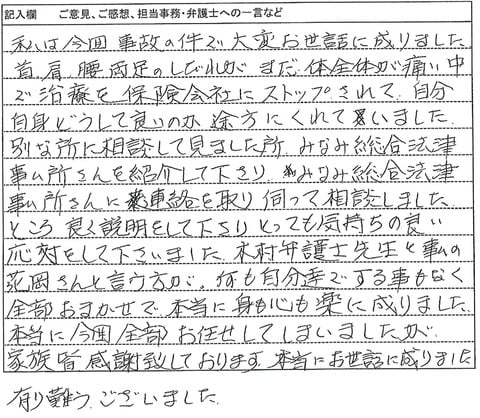 記入欄 ご意見、ご感想、担当事務・弁護士への一言など
私は今回事故の件で大変お世話に成りました
首、肩、腰両足のしびれがまだ体全体が痛い中
で治療を保険会社にストップされて、自分
自身どうして良いのか途方にくれて居ました。
別な所に相談して見ました所、みなみ総合法津
事ム所さんを紹介して下さり、みなみ総合法津
事ム所さんに連絡を取り伺って相談しました
ところ良く説明をして下さりとっても気持ちの良い
応対をして下さいました。木村弁護士先生と事ムの
花岡さんと言う方が、何も自分達でする事もなく
全部おまかせで、本当に身も心も楽に成りました。
本当に今回全部お任せしてしまいましたが、
家族皆感謝致しております。本当にお世話に成りました
有り難う、ございました。